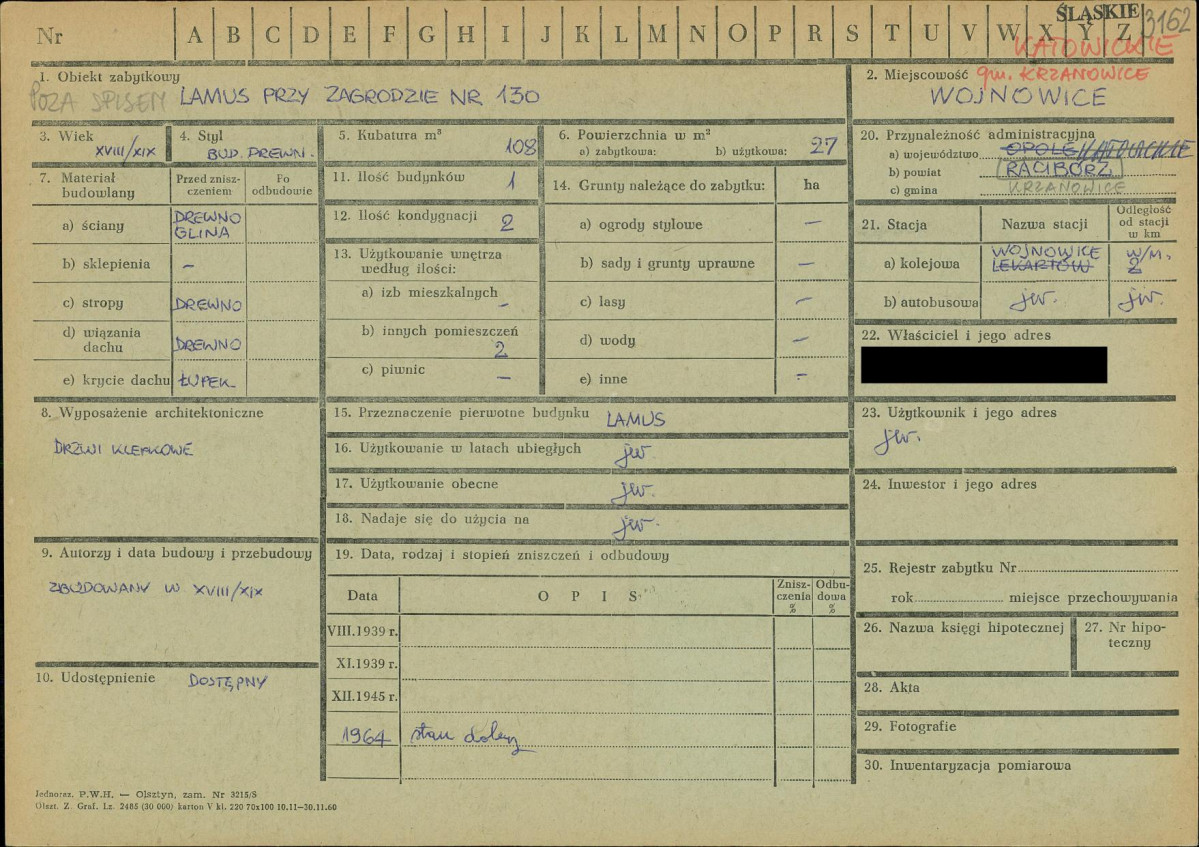 Nr A B C D E F G H I J K L M N O P R S T U V W X Y Z
ŚLĄSKIE 3162
KATOWICKIE
1. Obiekt zabytkowy
POZA SPISEM LAMUS PRZY ZAGRODZIE NR 130
2. Miejscowość gm. KRZANOWICE
WOJNOWICE
3. Wiek
XVIII/XIX
4. Styl
BUD. DREWN.
5. Kubatura m³
108
6. Powierzchnia w m²
a) zabytkowa: b) użytkowa: 27
7. Materiał budowlany
Przed zniszczeniem
Po odbudowie
a) ściany DREWNO GLINA
b) sklepienia –
c) stropy DREWNO
d) wiązania dachu DREWNO
e) krycie dachu ŁUPEK
11. Ilość budynków 1
12. Ilość kondygnacji 2
13. Użytkowanie wnętrza według ilości:
a) izb mieszkalnych –
b) innych pomieszczeń 2
c) piwnic –
14. Grunty należące do zabytku: ha
a) ogrody stylowe –
b) sady i grunty uprawne –
c) lasy –
d) wody –
e) inne –
20. Przynależność administracyjna
a) województwo OPOLE KATOWICKIE
b) powiat RACIBÓRZ
c) gmina KRZANOWICE
21. Stacja
Nazwa stacji
Odległość od stacji w km
a) kolejowa WOJNOWICE w/m.
LEKARTÓW 2
b) autobusowa jw. jw.
22. Właściciel i jego adres
8. Wyposażenie architektoniczne
DRZWI KLEPKOWE
15. Przeznaczenie pierwotne budynku LAMUS
16. Użytkowanie w latach ubiegłych jw.
17. Użytkowanie obecne jw.
18. Nadaje się do użycia na jw.
23. Użytkownik i jego adres
jw.
24. Inwestor i jego adres
9. Autorzy i data budowy i przebudowy
ZBUDOWANY W XVIII/XIX
10. Udostępnienie DOSTĘPNY
19. Data, rodzaj i stopień zniszczeń i odbudowy
Data OPIS Zniszczenia % Odbudowa %
VIII.1939 r.
XI.1939 r.
XII.1945 r.
1964 stan dobry
25. Rejestr zabytku Nr
rok miejsce przechowywania
26. Nazwa księgi hipotecznej
27. Nr hipoteczny
28. Akta
29. Fotografie
30. Inwentaryzacja pomiarowa
Jednoraz. P.W.H. — Olsztyn, zam. Nr 3215/S
Olszt. Z. Graf. Lz. 2485 (30 000) karton V kl. 220 70x100 10.11—30.11.60